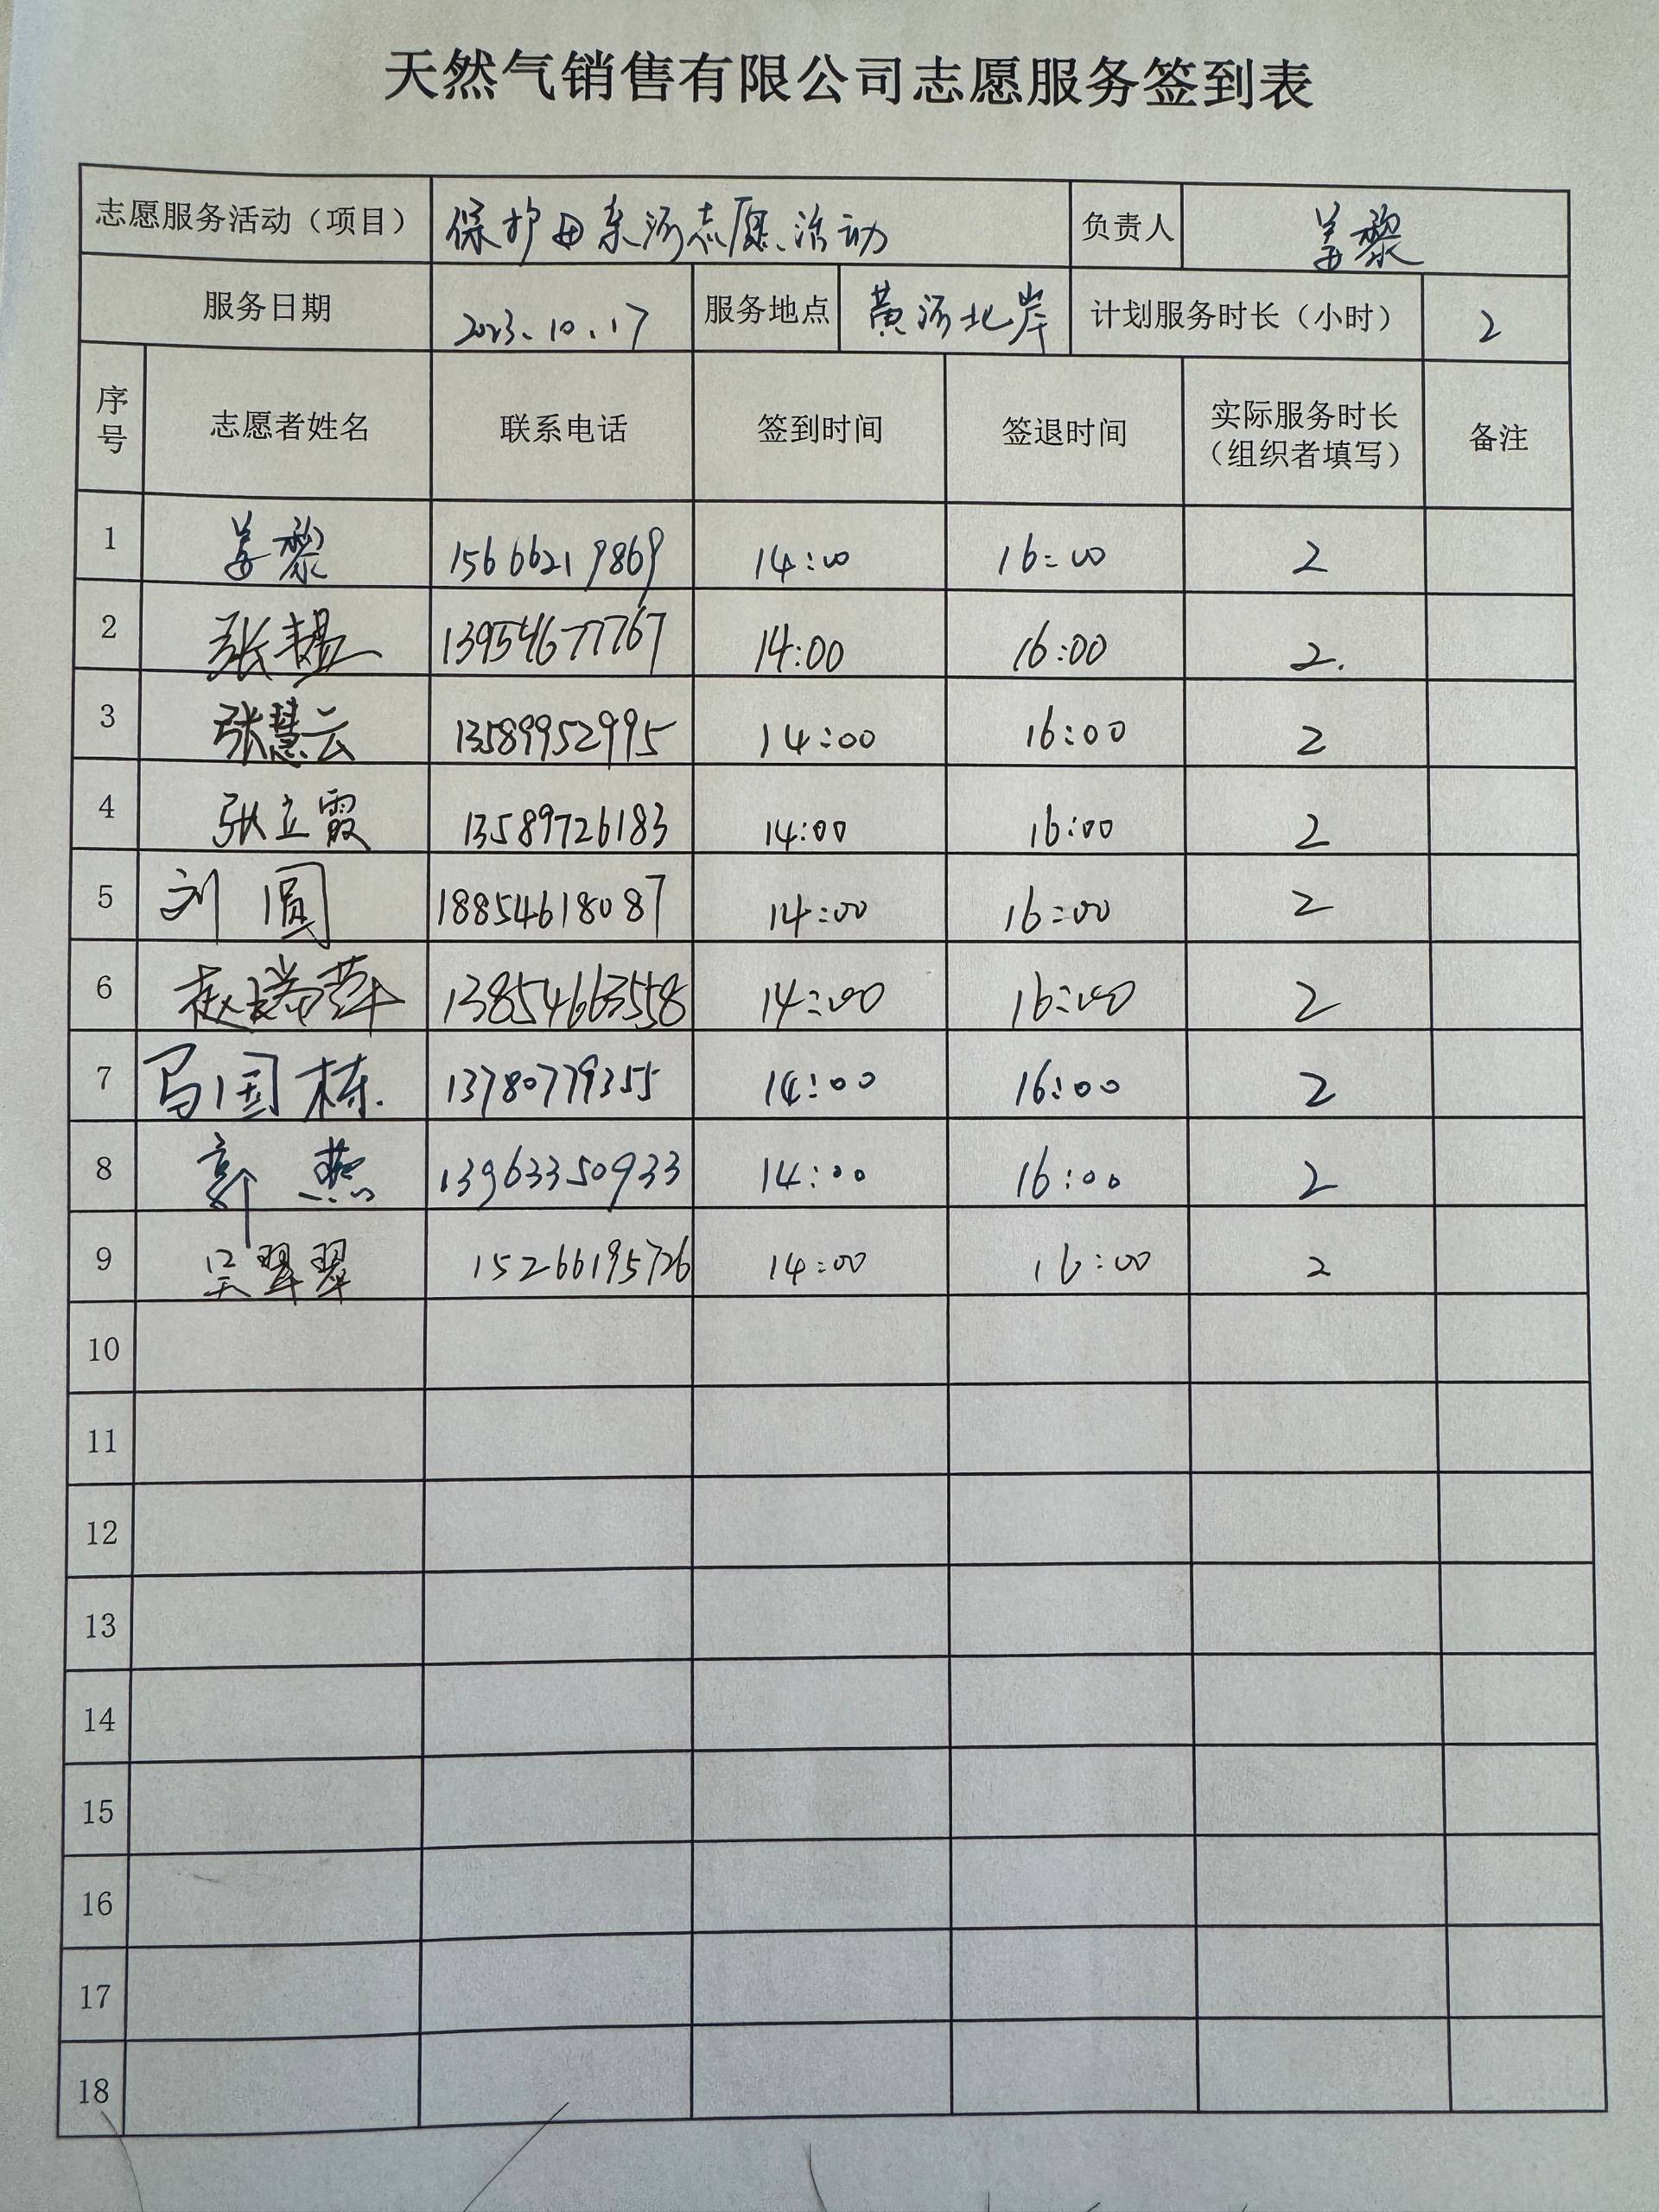 天然气销售有限公司志愿服务签到表
志愿服务活动（项目） 保护母亲河志愿活动 负责人 姜黎
服务日期 2023.10.17 服务地点 黄河北岸 计划服务时长（小时） 2
序号 志愿者姓名 联系电话 签到时间 签退时间 实际服务时长（组织者填写） 备注
1 姜黎 15666219869 14:00 16:00 2
2 张 13954677767 14:00 16:00 2.
3 张慧云 13589952995 14:00 16:00 2
4 张立霞 13589726183 14:00 16:00 2
5 刘圆 18854618087 14:00 16:00 2
6 赵瑞萍 13854663558 14:00 16:00 2
7 马国栋 13780779355 14:00 16:00 2
8 郭燕 13963350933 14:00 16:00 2
9 吴翠翠 15266195726 14:00 16:00 2
10
11
12
13
14
15
16
17
18